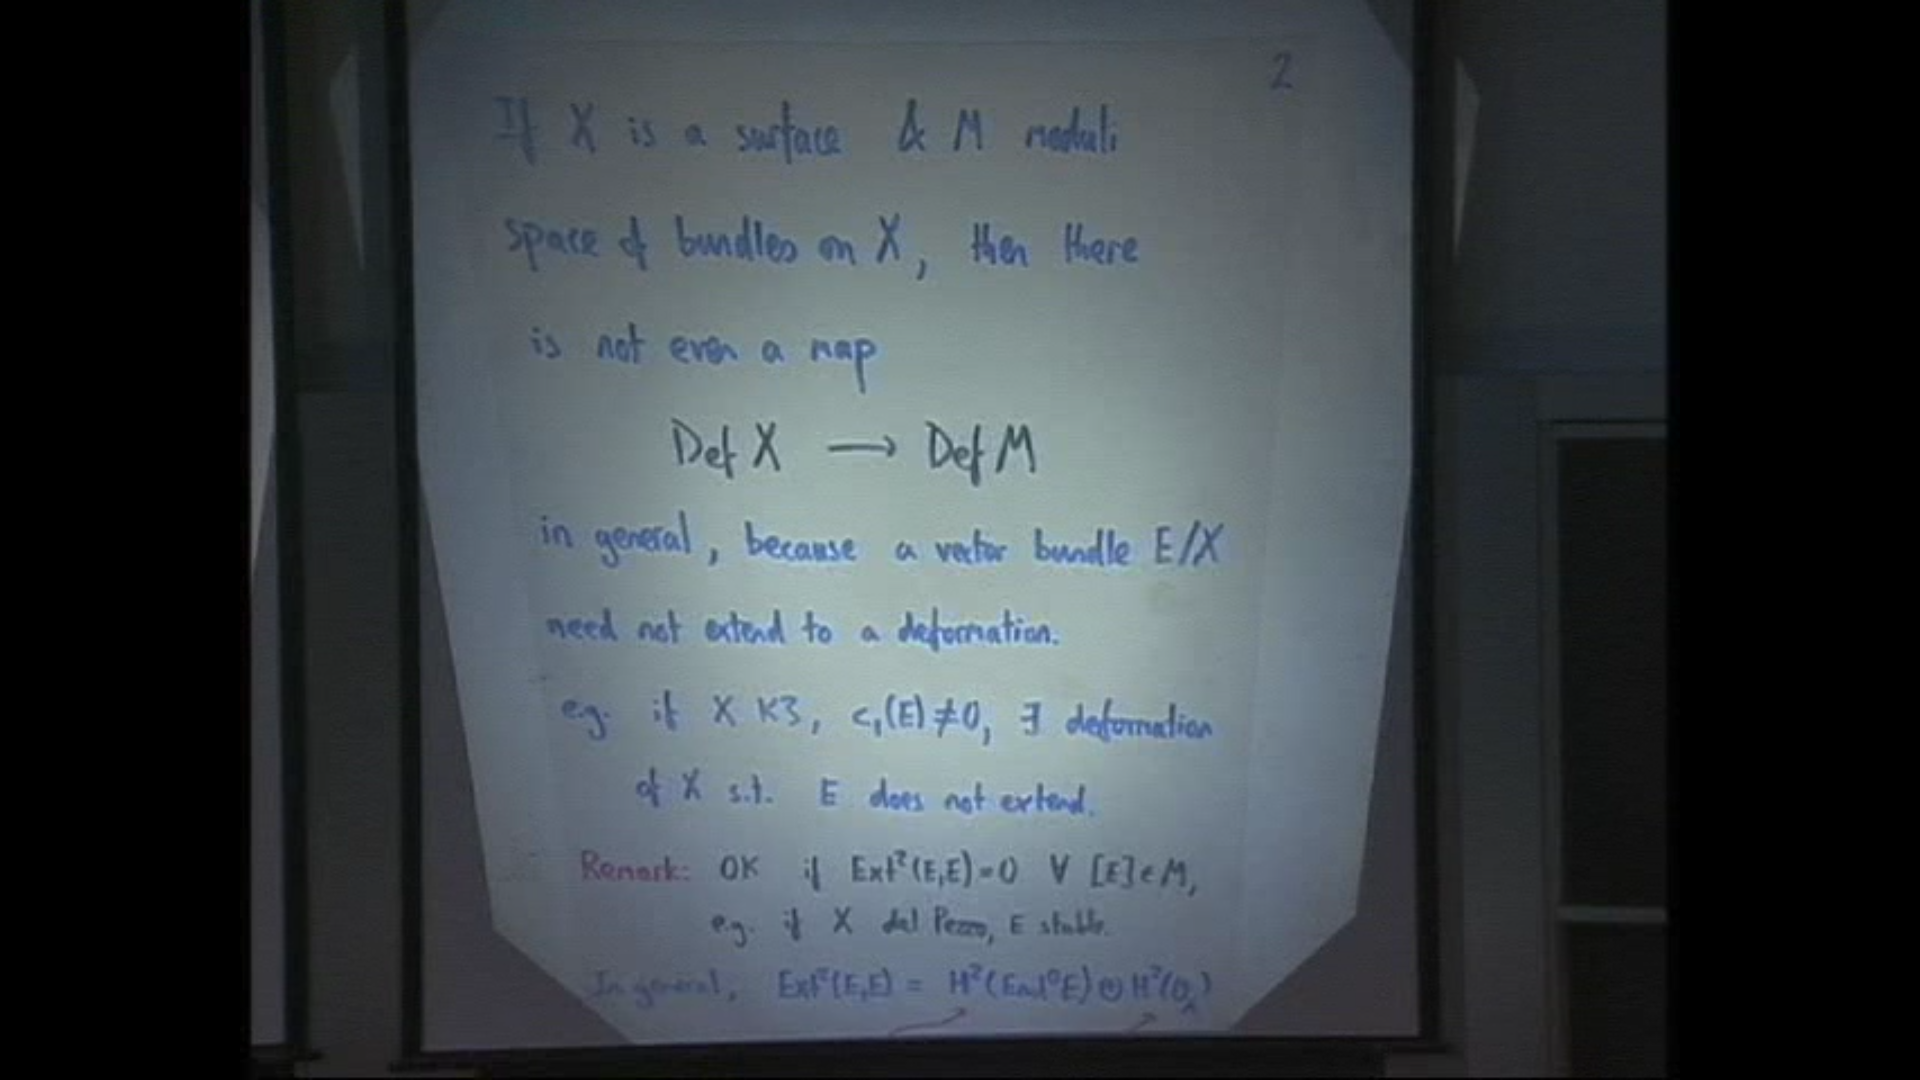 2
If X is a surface & M moduli
space of bundles on X, then there
is not even a map
Def X → Def M
in general, because a vector bundle E/X
need not extend to a deformation.
e.g. if X K3, c₁(E)≠0, ∃ deformation
of X s.t. E does not extend.
Remark: OK if Ext²(E,E)=0 ∀ [E]∈M,
e.g. if X del Pezzo, E stable.
In general, Ext²(E,E) = H²(End⁰E)⊕H²(O_X)